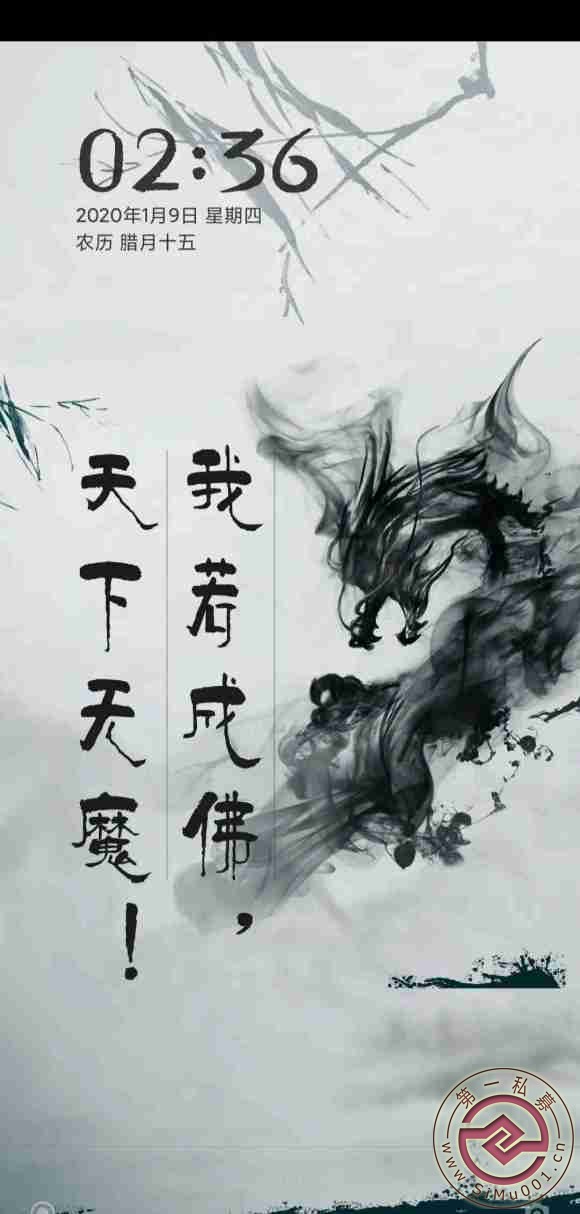 02:36
2020年1月9日 星期四
农历 腊月十五
我若成佛，
天下无魔！
第一私募
www.SiMu001.cn